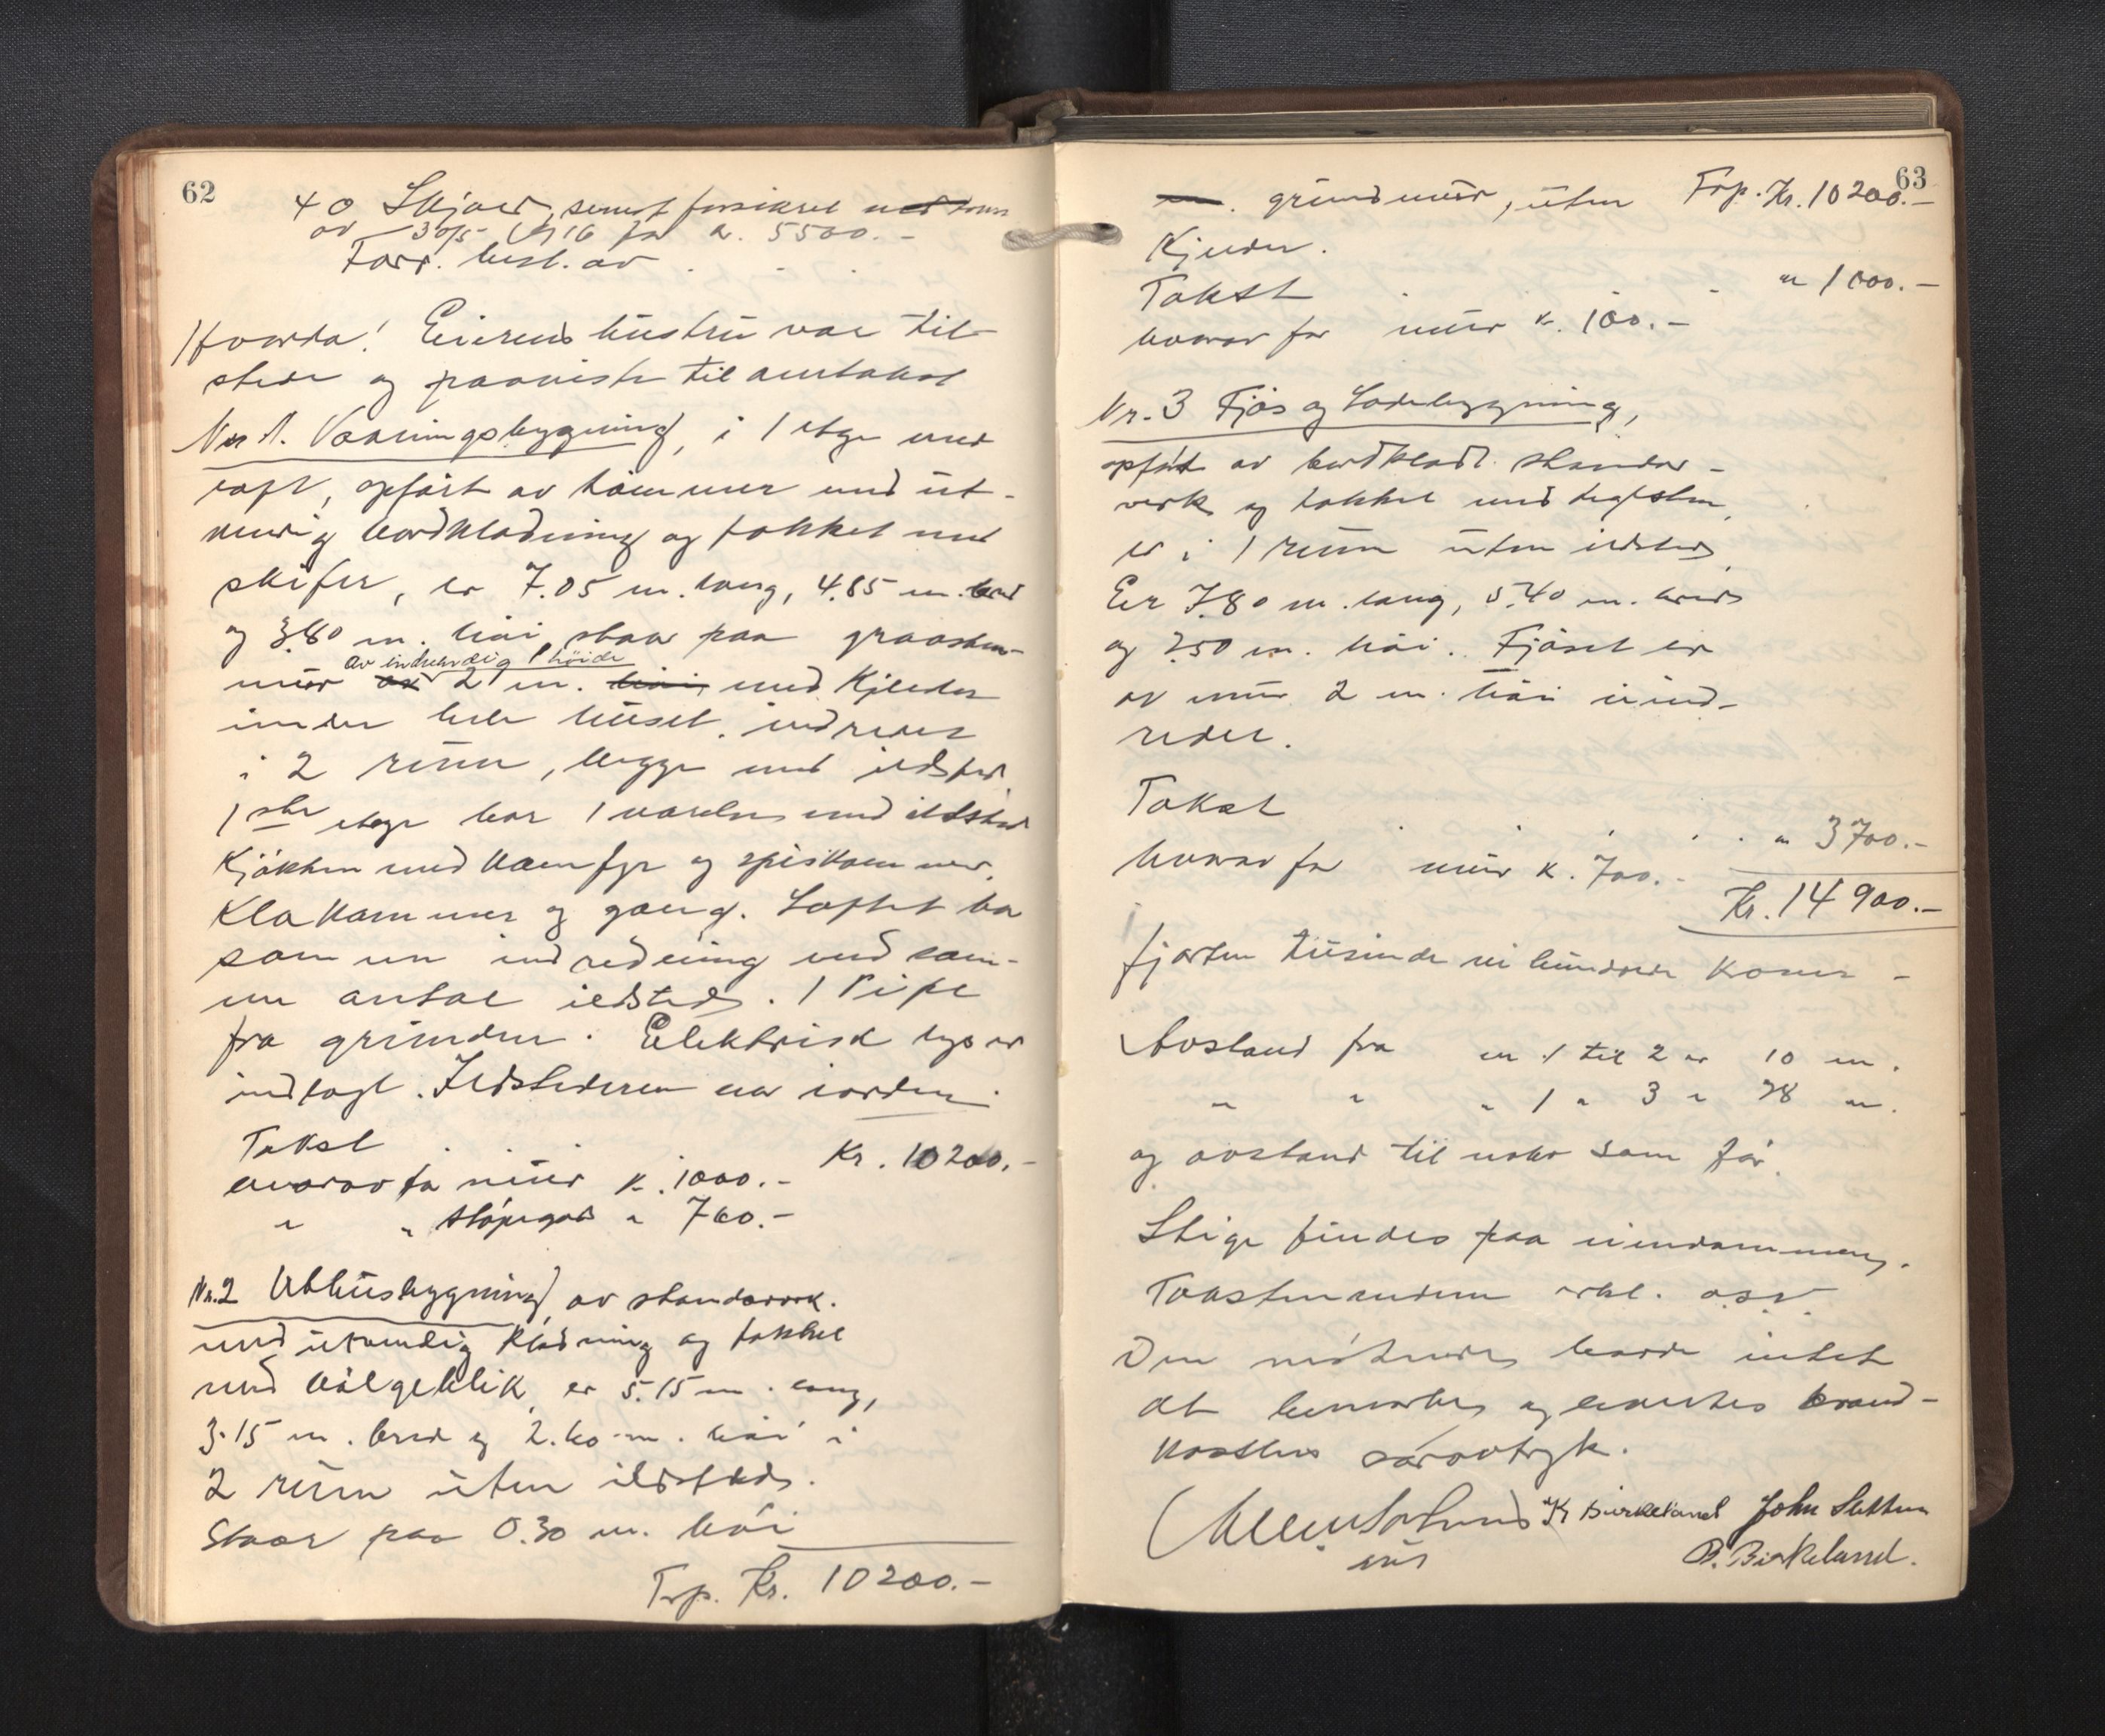 62
40 Skjold, senest forsikret
av 30/5 1916 for kr. 5500.-
Forr. best. av
Hvorda! Eierens hustru var til-
stede og paaviste til omtakst
No 1. Vaaningsbygning, i 1 etage med
loft, opført av tømmer med ut-
vendig bordklædning og tækket med
skifer, er 7.05 m. lang, 4.85 m. bred
og 3.80 m. høi, staar paa graasten-
av indvendig høide
mur av 2 m. høi, med Kjelder
under hele huset, indredet
i 2 rum, begge med ildsted.
1ste etage har 1 værelse med ildsted
Kjøkken med komfyr og spiskammer,
Klækammer og gang. Loftet har
samme indredning med sam-
me antal ildsteds. 1 Pipe
fra grunden. Elektrisk lys er
indlagt. Ildstederne er i orden.
Takst Kr. 10200.-
hvorav for mur kr. 1000.-
" " støpegods " 700.-
Nr. 2 Uthusbygning av standerverk.
med utvendig klædning og tækket
med bølgeblik, er 5.15 m. lang,
3.15 m. bred og 2.60 m. høi i
2 rum uten ildsteds.
Staar paa 0.30 m. høi
Trp. Kr. 10200.-
63
grundmur, uten Trp. Kr. 10200.-
Kjelder.
Takst " 1000.-
hvorav for mur kr. 100.-
Nr. 3 Fjøs og Ladebygning,
opført av bordklædt stander-
verk og tækket med teglsten,
er i 1 rum uten ildsteds.
Er 7.80 m. lang, 5.40 m. bred
og 2.50 m. høi. Fjøset er
av mur 2 m. høi uind-
redet.
Takst " 3700.-
hvorav for mur kr. 700.-
Kr. 14900.-
fjorten tusinde ni hundrede Kroner -
Avstand fra nr 1 til 2 er 10 m.
" " " 1 " 3 " 28 m.
og avstand til nabo som før.
Stige findes paa eiendommen.
Takstmændene erkl. o.s.v.
Den møtende hadde intet
at bemerke og leverstes brand-
kassens særavtryk.
K Birkeland John Sletten
B. Birkeland.